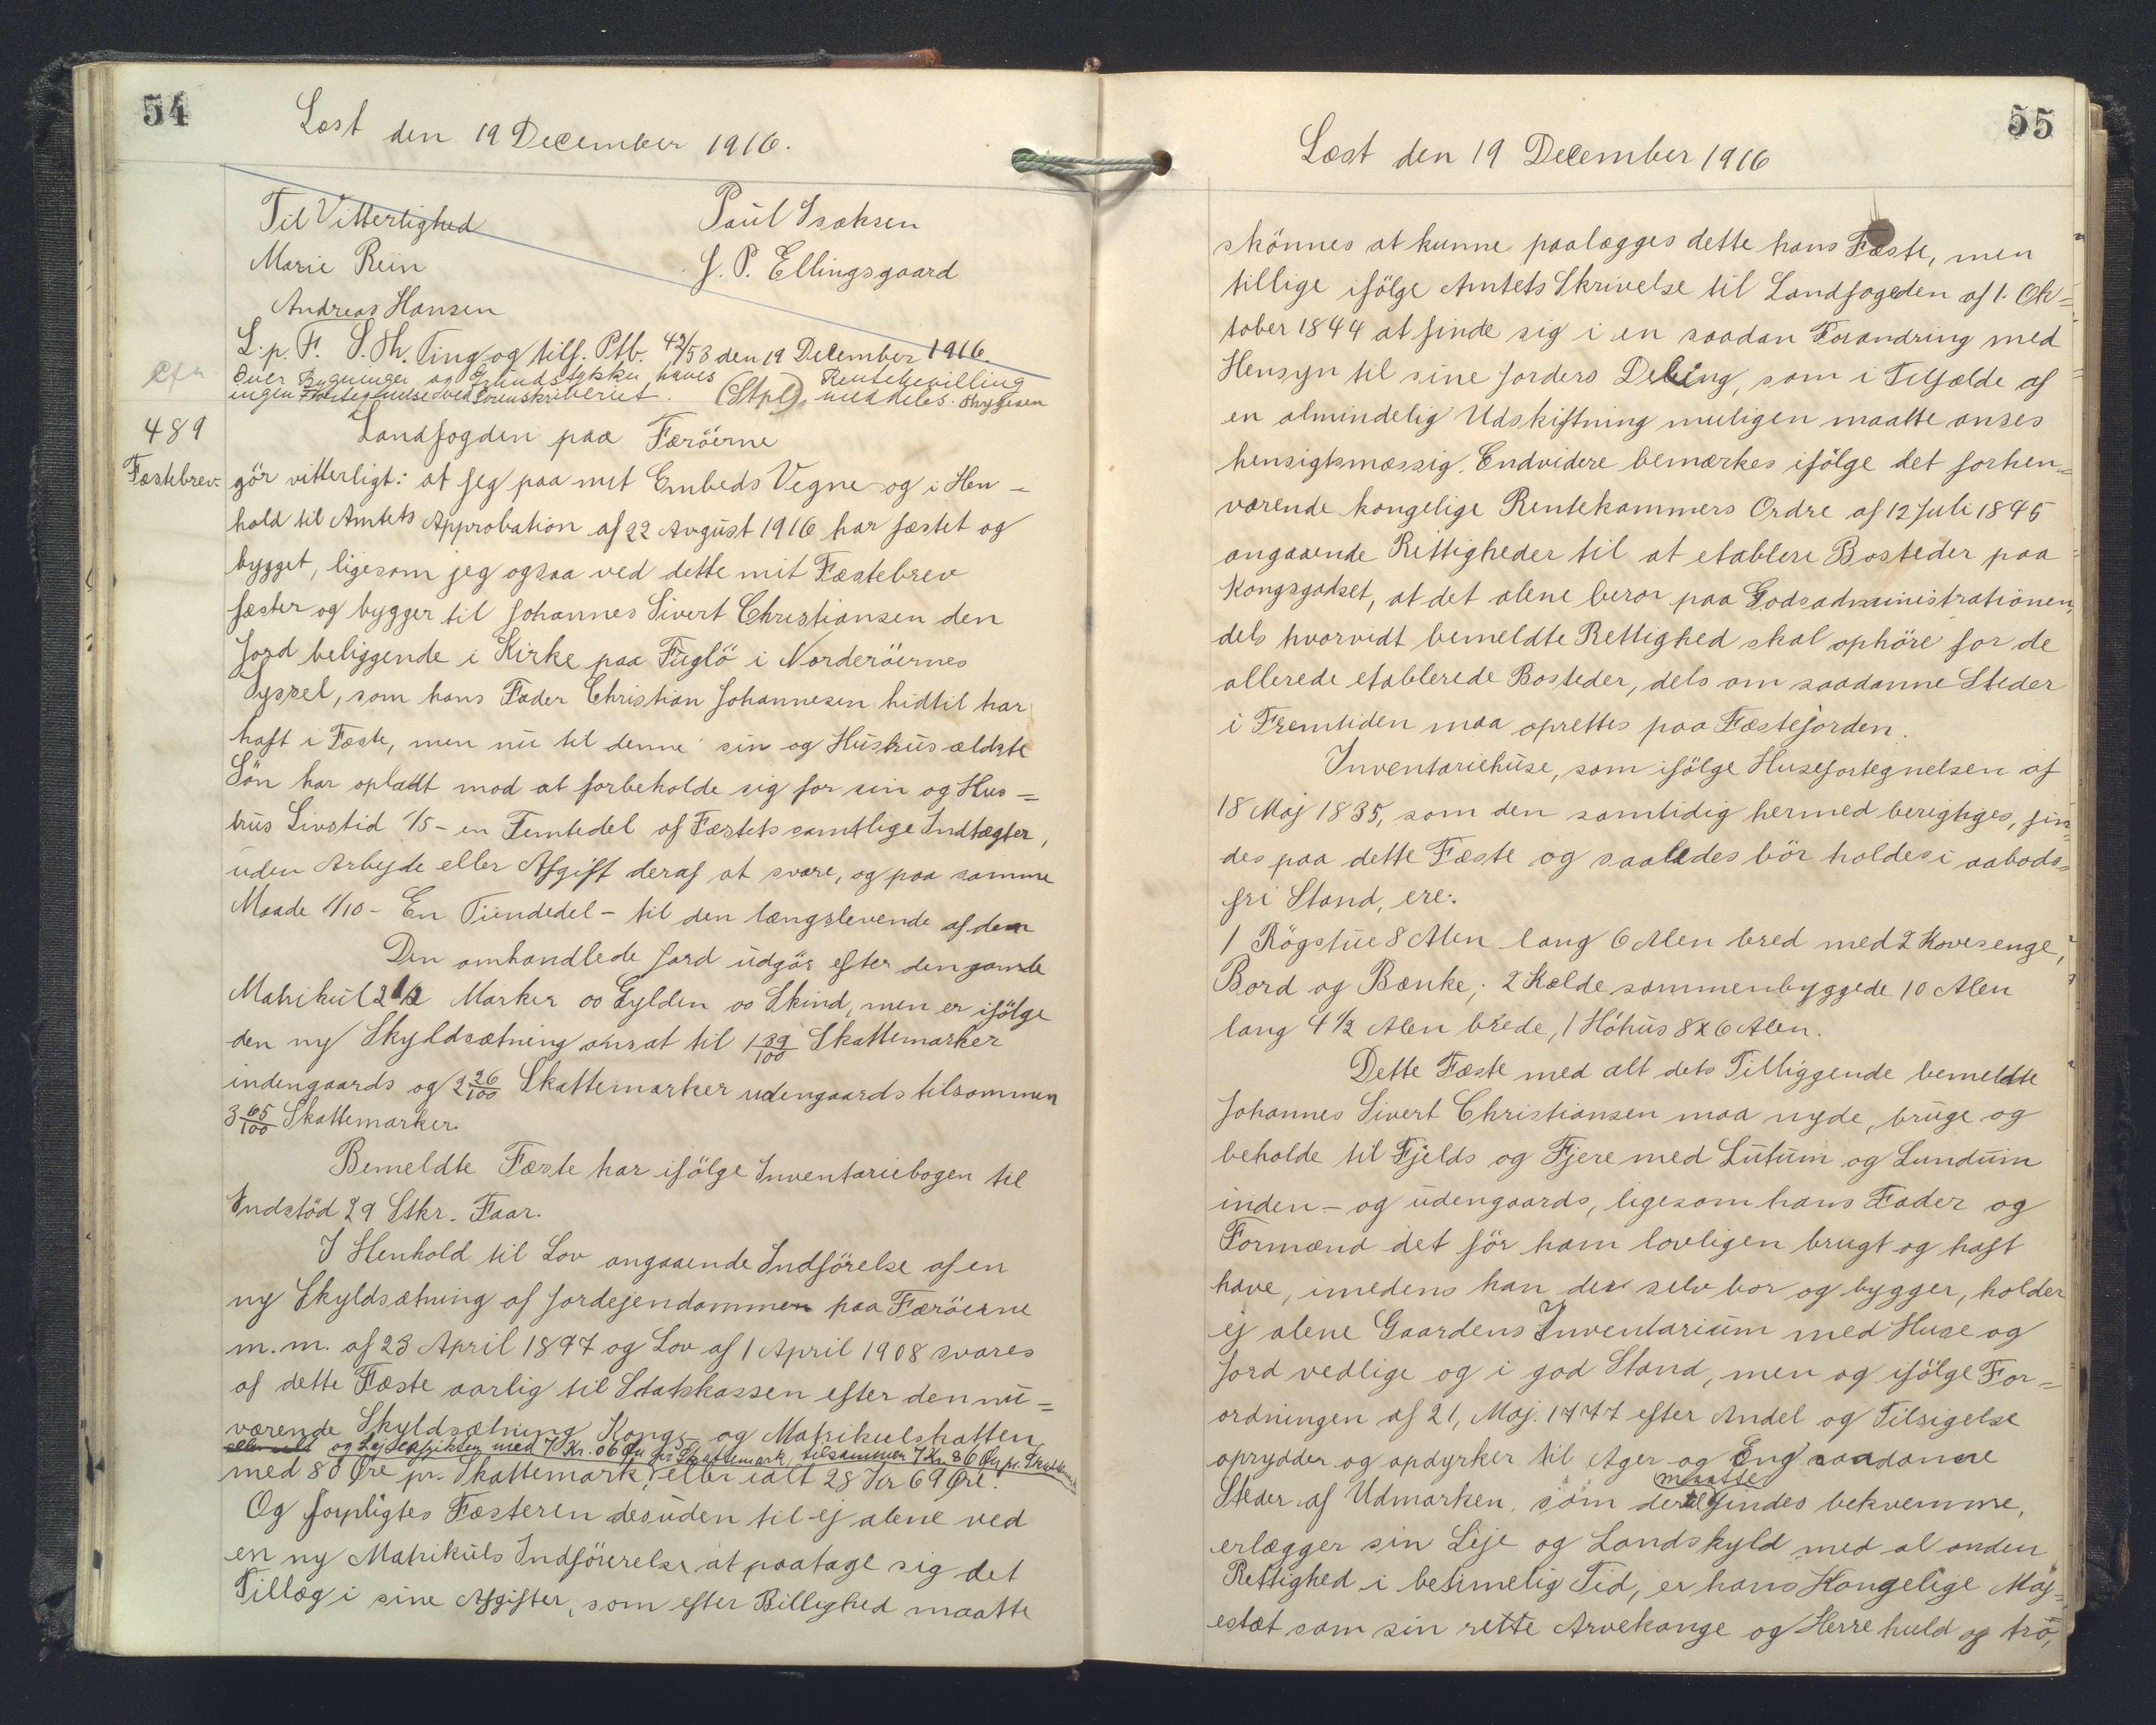 54
Læst den 19 December 1916.
Til Vitterlighed
Paul Isaksen
Marie Rein
J. P. Ellingsgaard
Andreas Hansen
L. p. F. S. Th. Ting og tilf. Ptb. 42/58 den 19 December 1916
Over Bygninger og Grundstykker haves Rentebevilling
ingen Fortegnelse ved Sorenskriveriet. (Stpl). meddeles.
489
Landfogden paa Færöerne
Fæstebrev. gör vitterligt: at jeg paa mit Embeds Vegne og i Hen=
hold til Amtets Approbation af 22 Avgust 1916 har fæstet og
bygget, ligesom jeg ogsaa ved dette mit Fæstebrev
fæster og bygger til Johannes Sivert Christiansen den
Jord beliggende i Kirke paa Fuglö i Norderöernes
Syssel, som hans Fader Christian Johannesen hidtil har
haft i Fæste, men nu til denne sin og Hustrus ældste
Sön har opladt mod at forbeholde sig for sin og Hus=
trus Livstid 1/5 - en Femtedel af Fæstets samtlige Indtægter,
uden Arbejde eller Afgift deraf at svare, og paa samme
Maade 1/10 - En Tiendedel - til den længstlevende af dem
Den omhandlede Jord udgör efter den gamle
Matrikul 2 1/2 Marker oo Gylden oo Skind, men er ifölge
den ny Skyldsætning ansat til 1 39/100 Skattemarker
indengaards og 2 26/100 Skattemarker udengaards tilsammen
3 65/100 Skattemarker.
Bemeldte Fæste har ifölge Inventariebogen til
Indstöd 29 Stkr. Faar.
I Henhold til Lov angaaende Indförelse af en
ny Skyldsætning af Jordejendommen paa Færöerne
m.m. af 23 April 1897 og Lov af 1 April 1908 svares
af dette Fæste aarlig til Statskassen efter den nu=
værende Skyldsætning Konge- og Matrikulskatten
og Lejeafgiften med 7 Kr. 06 Øre pr Skattemark, tilsammen 7 Kr 86 Øre pr. Skattemark
med 80 Øre pr. Skattemark, eller ialt 28 Kr 69 Øre.
Og forpligtes Fæsteren desuden til ej alene ved
en ny Matrikuls Indförerelse at paatage sig det
Tillæg i sine Afgifter, som efter Billighed maatte
55
Læst den 19 December 1916
skönnes at kunne paalægges dette hans Fæste, men
tillige ifölge Amtets Skrivelse til Landfogeden af 1. Ok=
tober 1844 at finde sig i en saadan Forandring med
Hensyn til sine Jorders Deling, som i Tilfælde af
en almindelig Udskiftning muligen maatte anses
hensigtsmæssig. Endvidere bemærkes ifölge det forhen=
værende kongelige Rentekammers Ordre af 12 Juli 1845
angaaende Rettigheder til at etablere Bosteder paa
Kongsgodset, at det alene beror paa Godsadministrationen,
dels hvorvidt bemeldte Rettighed skal ophöre for de
allerede etablerede Bosteder, dels om saadanne Steder
i Fremtiden maa oprettes paa Fæstejorden.
Inventariehuse, som ifölge Husefortegnelsen af
18 Maj 1835, som den samtidig hermed berigtiges, fin=
des paa dette Fæste og saaledes bör holdes i aabods=
fri Stand, ere:.
1 Rögstue 8 Alen lang 6 Alen bred med 2 Kovesenge,
Bord og Bænke; 2 Kælde sammenbyggede 10 Alen
lang 4 1/2 Alen brede, 1 Höhus 8 x 6 Alen.
Dette Fæste med alt dets Tilliggende bemeldte
Johannes Sivert Christiansen maa nyde, bruge og
beholde til Fjelds og Fjere med Lutum og Lundum
inden- og udengaards, ligesom hans Fader og
Formænd det för ham lovligen brugt og haft
have, imedens han der selv bor og bygger, holder
ej alene Gaardens Inventarium med Huse og
Jord vedlige og i god Stand, men og ifölge For=
ordningen af 21, Maj. 1777 efter Andel og Tilsigelse
oprydder og opdyrker til Ager og Eng saadanne
maatte
Steder af Udmarken, som dertil findes bekvemme,
erlægger sin Leje og Landskyld med al anden
Rettighed i betimelig Tid, er hans Kongelige Maj=
estæt som sin rette Arvekonge og Herre huld og tro,